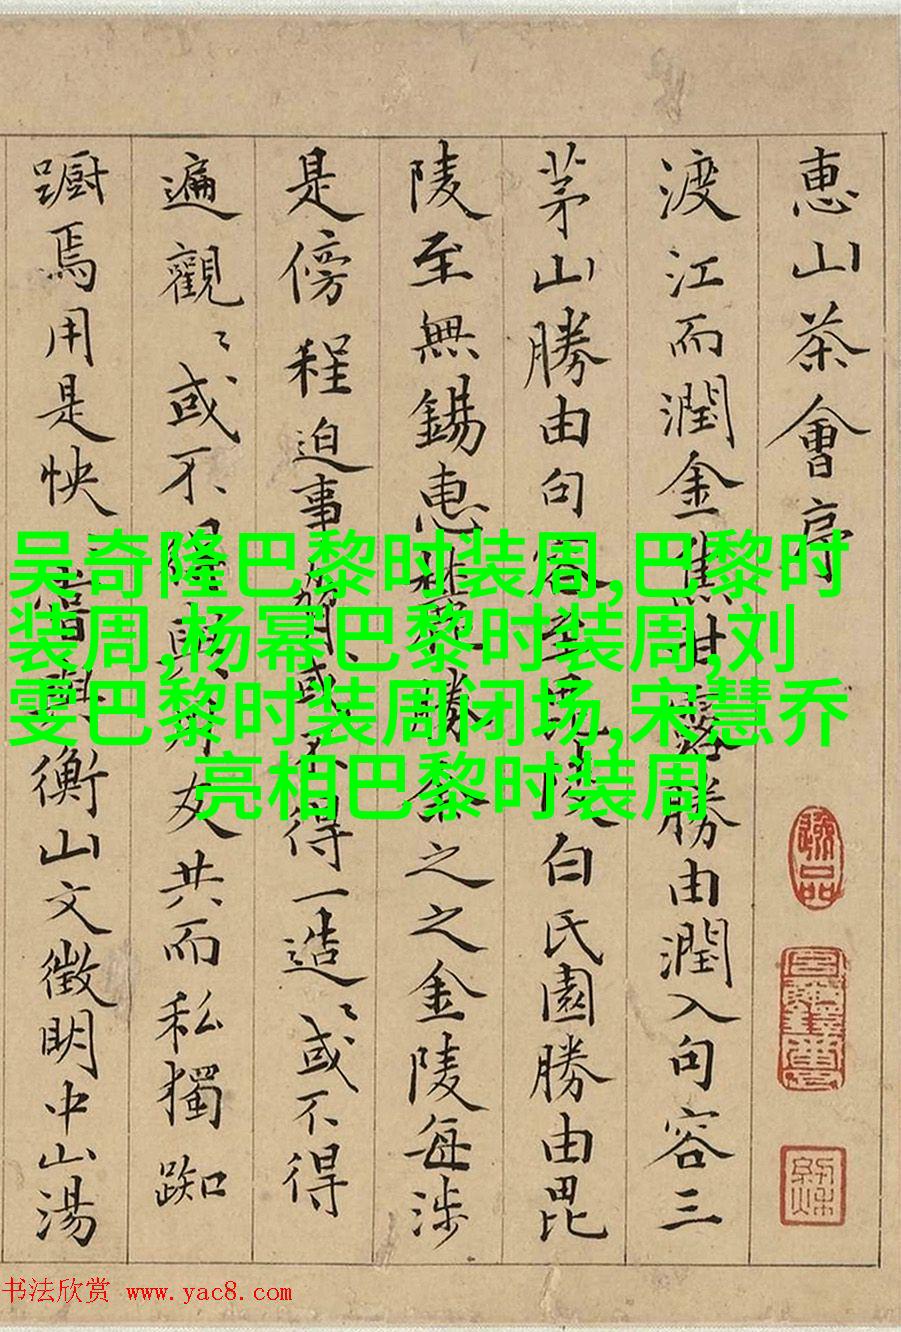 恵山茶會序
渡江而潤金焦甘露勝由潤入句容三
茅山勝由句容至毘陵白氏園勝由毘
陵至無錫恵麓勝余之之金陵每涉
是傍程迫事務或不得一造〻或不得
遍觀〻或不得與朋友共而私獨踟
蹰焉用是怏與衡山文徵明中山湯
吴奇隆巴黎时装周,巴黎时
装周,杨幂巴黎时装周,刘
雯巴黎时装周闭场,宋慧乔
亮相巴黎时装周
书法欣赏 www.yac8.com